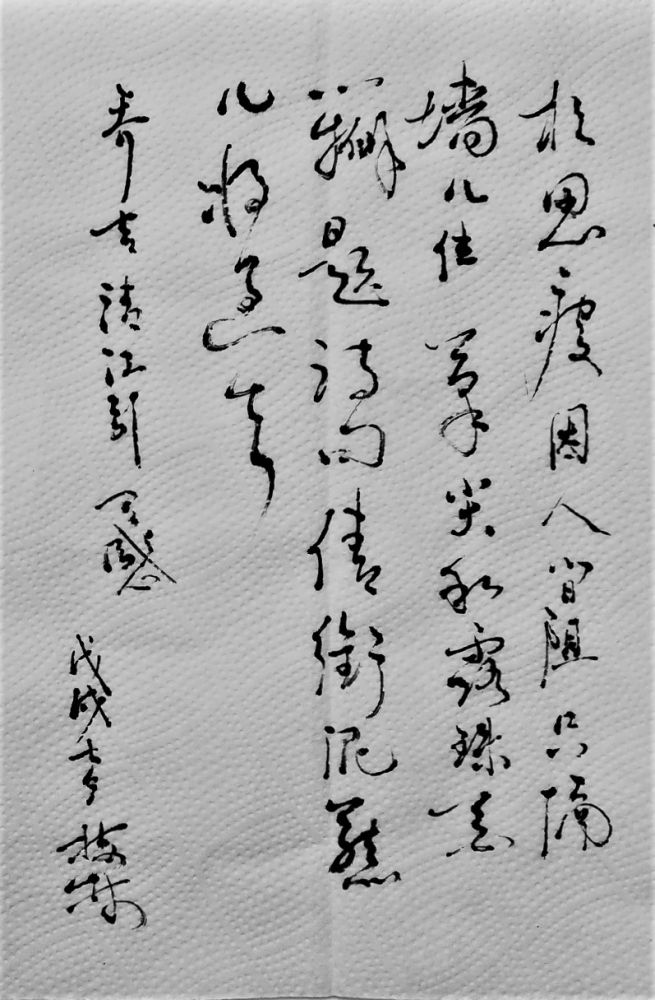 相思瘦因人间阻只隔
墙儿住笔尖和露珠花
瓣题诗句倩衔泥燕
儿将过去
乔吉清江引 有感 戊戌